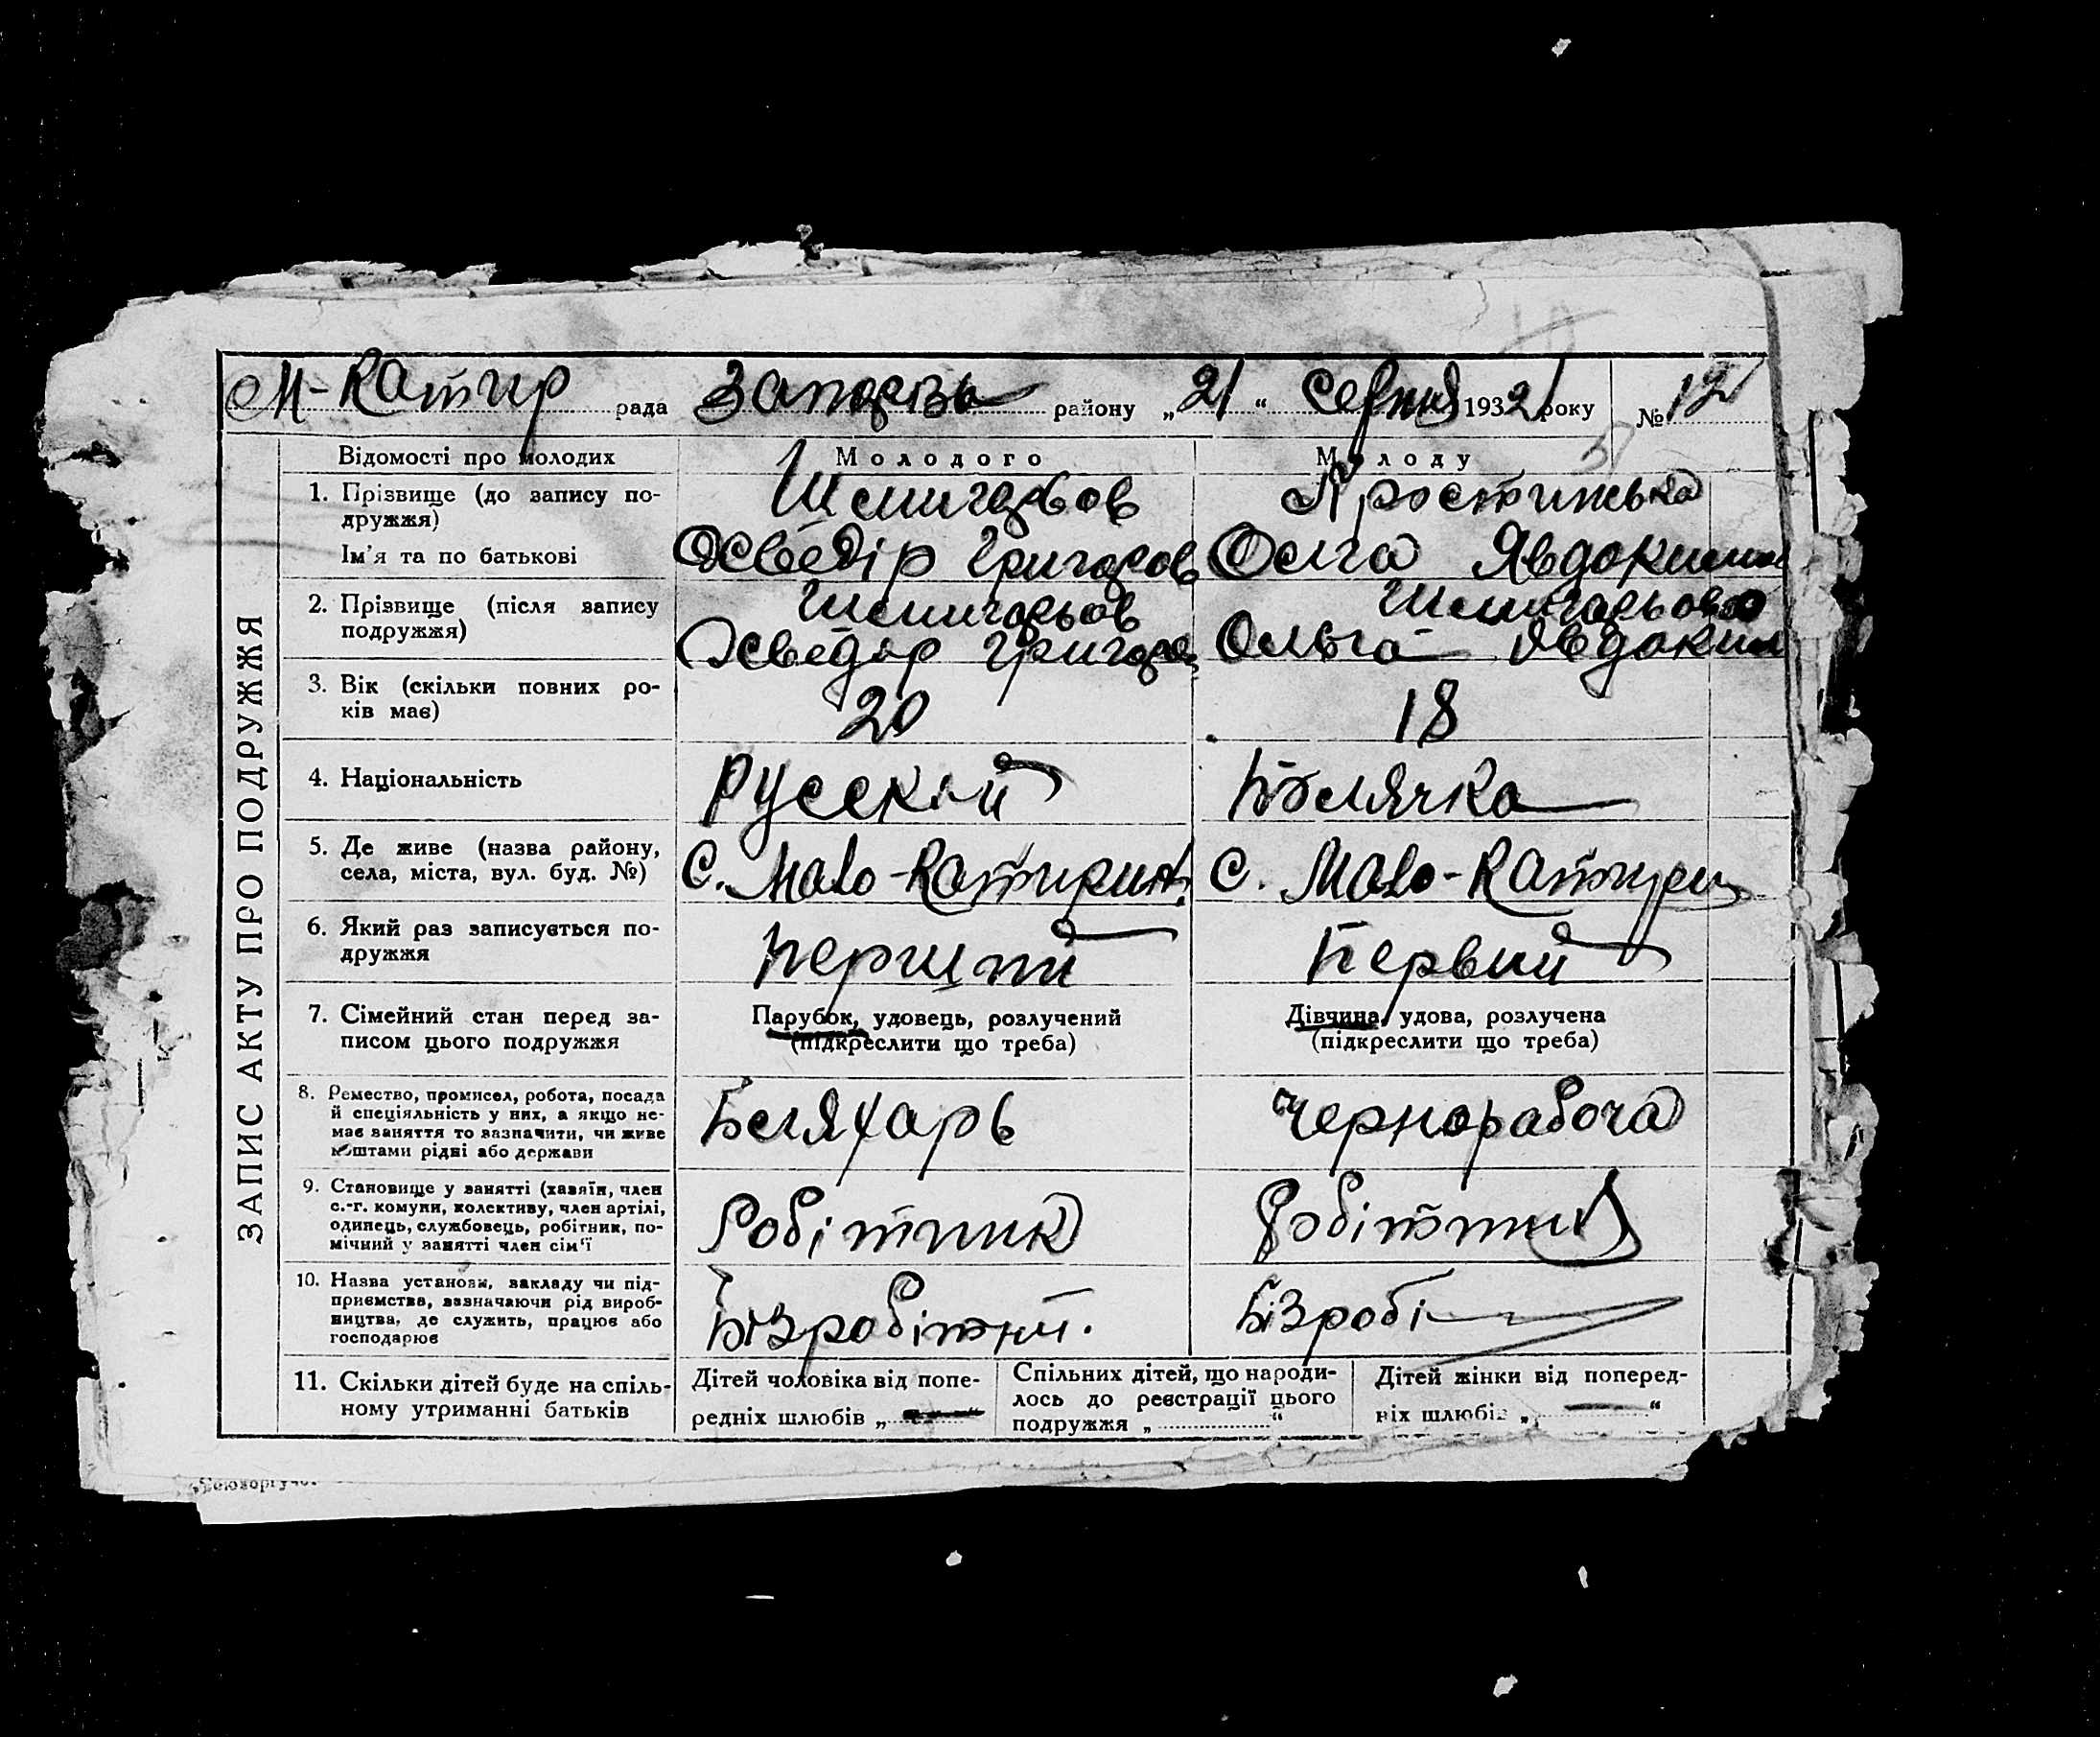 М-Катир рада Запорізь району „21“ Серпня 1932 року № 12
ЗАПИС АКТУ ПРО ПОДРУЖЖЯ
Відомості про молодих Молодого Молоду
1. Прізвище (до запису по-
дружжя)
Ім'я та по батькові
Григоров Олга Явдоким
2. Прізвище (після запису
подружжя)
Григоро Ольга Явдоким
3. Вік (скільки повних ро-
ків має)
20 18
4. Національність
Русский Полячка
5. Де живе (назва району,
села, міста, вул. буд. №)
С. Мало-Катирин. С. Мало-Катирин
6. Який раз записується по-
дружжя
Перший Первий
7. Сімейний стан перед за-
писом цього подружжя
Парубок, удовець, розлучений
(підкреслити що треба)
Дівчина, удова, розлучена
(підкреслити що треба)
8. Ремество, промисел, робота, посада
й спеціяльність у них, а якщо не-
має заняття то зазначити, чи живе
коштами рідні або держави
чернорабоча
9. Становище у занятті (хазяїн, член
с.-г. комуни, колективу, член артілі,
одинець, службовець, робітник, по-
мічний у занятті член сім'ї
Робітник Робітник
10. Назва установи, закладу чи під-
приємства, зазначаючи рід вироб-
ництва, де служить, працює або
господарює
Бізробітни. Бізробі
11. Скільки дітей буде на спіль-
ному утриманні батьків
Дітей чоловіка від попе-
редніх шлюбів „ “
Спільних дітей, що народи-
лось до реєстрації цього
подружжя „ “
Дітей жінки від поперед-
ніх шлюбів „ — “